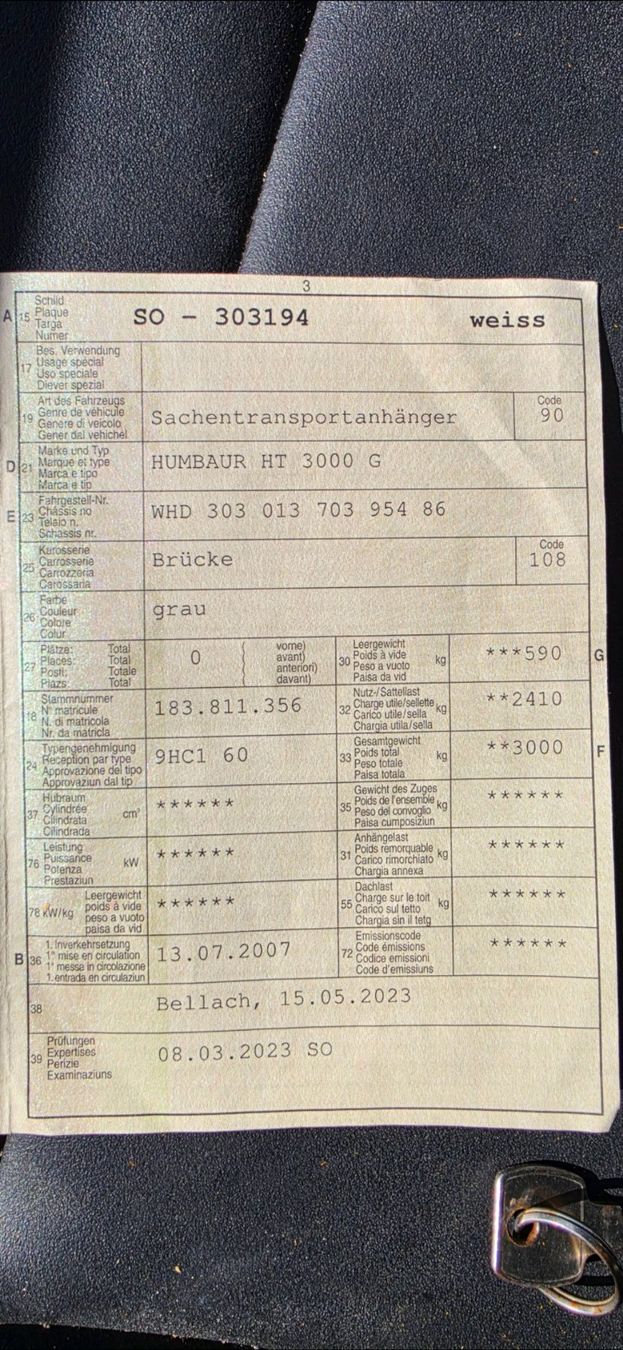 3
A 15 Schild SO - 303194 weiss
Plaque
Targa
Numer
17 Bes. Verwendung
Usage spécial
Uso speciale
Diever spezial
19 Art des Fahrzeugs Sachentransportanhänger Code 90
Genre de véhicule
Genere di veicolo
Gener dal vehichel
D 21 Marke und Typ HUMBAUR HT 3000 G
Marque et type
Marca e tipo
Marca e tip
E 23 Fahrgestell-Nr. WHD 303 013 703 954 86
Châssis no
Telaio n.
Schassis nr.
25 Karosserie Brücke Code 108
Carrosserie
Carrozzeria
Carossaria
26 Farbe grau
Couleur
Colore
Colur
27 Plätze: Total 0 vorne)
Places: Total avant)
Posti: Totale anteriori)
Plazs: Total davant)
30 Leergewicht kg ***590 G
Poids à vide
Peso a vuoto
Paisa da vid
18 Stammnummer 183.811.356
N° matricule
N. di matricola
Nr. da matricla
32 Nutz-/Sattellast kg **2410
Charge utile/sellette
Carico utile/sella
Chargia utila/sella
24 Typengenehmigung 9HC1 60
Réception par type
Approvazione del tipo
Approvaziun dal tip
33 Gesamtgewicht kg **3000 F
Poids total
Peso totale
Paisa totala
37 Hubraum cm³ ******
Cylindrée
Cilindrata
Cilindrada
35 Gewicht des Zuges kg ******
Poids de l'ensemble
Peso del convoglio
Paisa cumposiziun
76 Leistung kW ******
Puissance
Potenza
Prestaziun
31 Anhängelast kg ******
Poids remorquable
Carico rimorchiato
Chargia annexa
78 kW/kg Leergewicht ******
poids à vide
peso a vuoto
paisa da vid
55 Dachlast kg ******
Charge sur le toit
Carico sul tetto
Chargia sin il tetg
B 36 1. Inverkehrsetzung 13.07.2007
1re mise en circulation
1a messa in circolazione
1. entrada en circulaziun
72 Emissionscode ******
Code émissions
Codice emissioni
Code d'emissiuns
38 Bellach, 15.05.2023
39 Prüfungen 08.03.2023 SO
Expertises
Perizie
Examinaziuns